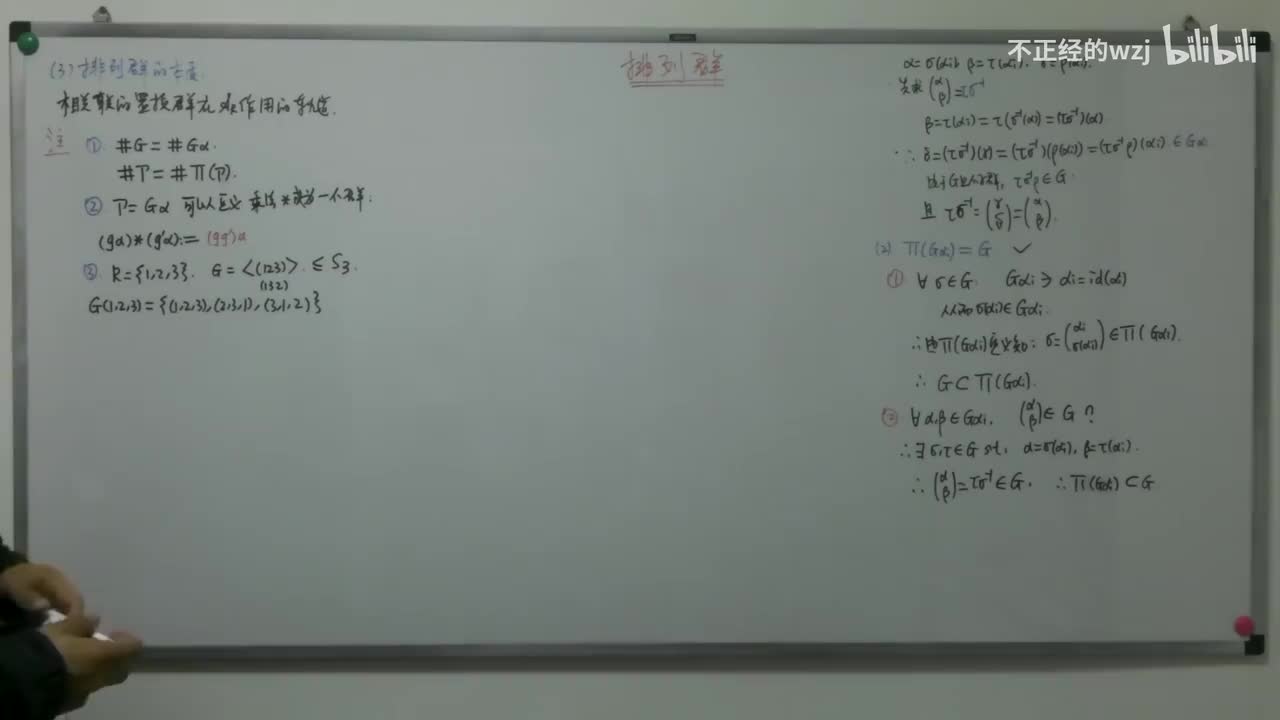 不正经的wzj bilibili
排列群
(3) 排列群的古意.
相联的置换群元素作用的轨道.
注 ① #G = #Gα.
#P = #Π(P).
② P = Gα 可以定义乘法*成为一个群.
(gα)*(g'α) := (gg')α
③ R = {1,2,3}. G = <(123)> ≤ S₃.
(132)
G(1,2,3) = {(1,2,3),(2,3,1),(3,1,2)}
α = σ(αi), β = τ(αi), γ = ρ(αi).
先求 (α β) = τσ⁻¹
β = τ(αi) = τ(σ⁻¹(α)) = (τσ⁻¹)(α)
∴ δ = (τσ⁻¹)(γ) = (τσ⁻¹)(ρ(αi)) = (τσ⁻¹ρ)(αi) ∈ Gαi
由于G是个群, τσ⁻¹ρ ∈ G
且 τσ⁻¹ = (γ δ) = (α β).
(2) Π(Gαi) = G ✓
① ∀ σ∈G. Gαi ∋ αi = id(αi)
从而 σ(αi) ∈ Gαi.
∴ 由Π(Gαi)定义知: σ = (αi σ(αi)) ∈ Π(Gαi).
∴ G ⊂ Π(Gαi).
② ∀ α,β ∈ Gαi. (α β) ∈ G ?
∴ ∃ σ,τ ∈ G s.t. α = σ(αi), β = τ(αi).
∴ (α β) = τσ⁻¹ ∈ G. ∴ Π(Gαi) ⊂ G